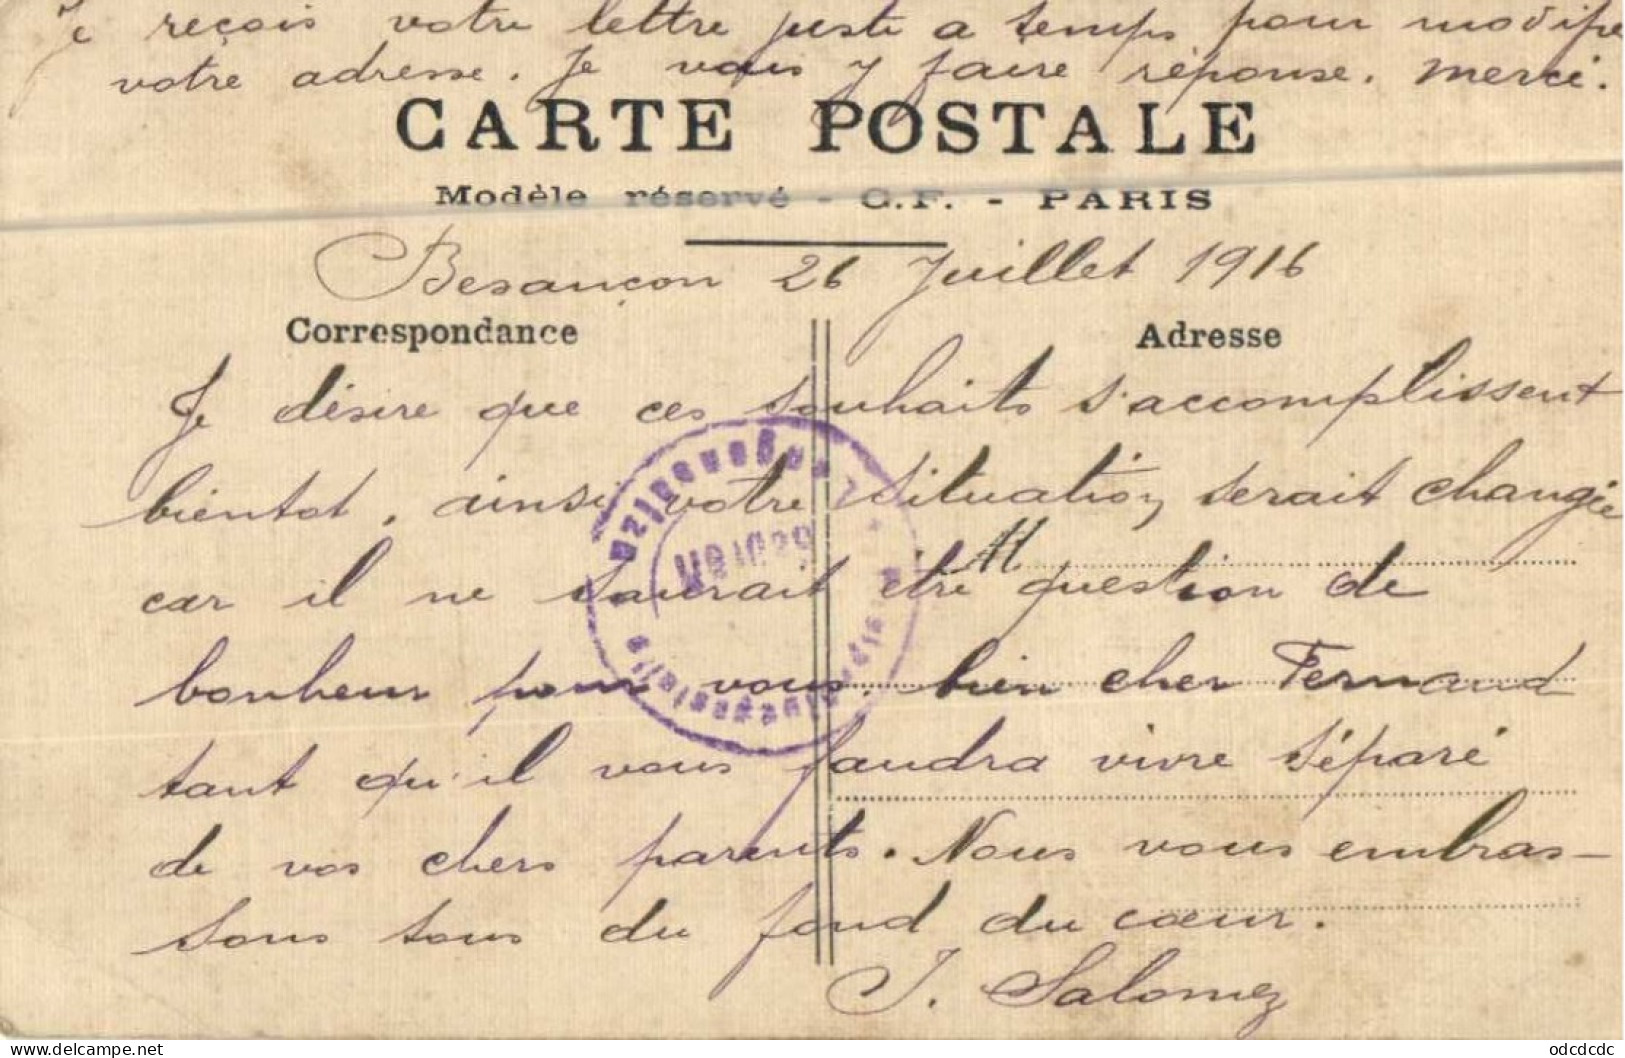 Je reçois votre lettre juste a temps pour modifie
votre adresse. Je vais y faire réponse. Merci.
CARTE POSTALE
Modèle réservé - C.F. - PARIS
Besançon 26 Juillet 1916
Correspondance
Adresse
Je désire que ces souhaits s'accomplissent
bientot, ainsi votre situation serait changée
car il ne saurait être question de
bonheur pour vous bien cher Fernand
tant qu'il vous faudra vivre séparé
de vos chers parents. Nous vous embras-
sons tous du fond du cœur.
J. Salomez
odcdcdc